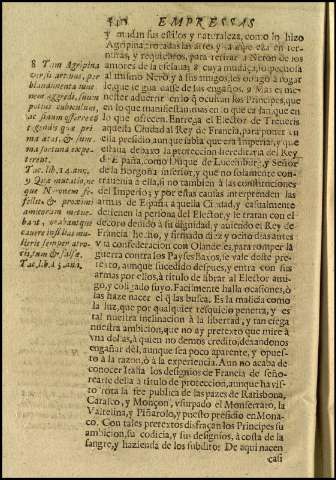 EMPRESSAS
y mudan sus estilos y naturaleza, como lo hizo
Agripina, trocadas las artes, y la aspereza en ter-
nuras, y requiebros, para retirar a Neron de los
amores de la esclava: cuya mudança, sospechosa
al mismo Nero, y a sus amigos, les obligò a rogar-
le, que se guardasse de sus engaños. Mas es me-
nester advertir en lo q̃ ocultan los Principes, que
en lo que manifiestan, mas en lo que callan, que en
lo que ofrecen. Entrega el Elector de Treveris
aquella Ciudad al Rey de Francia, para poner en
ella presidio, aunque sabia que era Imperial, y que
estava debaxo la proteccion hereditaria del Rey
de España, como Duque de Lucemburg, y Señor
de la Borgoña inferior, y que no solamente con-
travenia a ella, si no tambien a las constituciones
del Imperio: y por estas causas interprenden las
armas de España aquella Ciudad, y casualmente
detienen la persona del Elector, y le tratan con el
decoro devido a su dignidad, y aviendo el Rey de
Francia hecho, y firmado diez y ocho dias antes
una confederacion con Olandeses, para romper la
guerra contra los Payses Baxos, se vale deste pre-
texto, aunque sucedido despues, y entra con sus
armas por ellos, a titulo de librar al Elector ami-
go, y coligado suyo. Facilmente halla ocasiones, ò
las haze nacer el q̃ las busca. Es la malicia como
la luz, que por qualquier resquicio penetra, y es
tal nuestra inclinacion a la libertad, y tan ciega
nuestra ambicion, que no ay pretexto que mire à
una dellas, à quien no demos credito, dexandonos
engañar dèl, aunque sea poco aparente, y opues-
to à la razon, ò à la experiencia. Aun no acaba de
conocer Italia los designios de Francia de seño-
rearse della à titulo de proteccion, aunque ha vis-
to rota la fee publica de las pazes de Ratisbona,
Carasco, y Monçon, usurpado el Monferrato, la
Valtelina, y Piñarolo, y puesto presidio en Mona-
co. Con tales pretextos disfraçan los Principes su
ambicion, su codicia, y sus designios, à costa de la
sangre, y hazienda de los subditos. De aqui nacen
casi
8 Tum Agripina
versis artibus, per
blandimenta iuve-
nem aggredi, suum
potius cubiculum,
ac sinum offerre co-
tegendis que pri-
ma ætas, & sum-
ma fortuna expe-
terent.
Tac. lib. 13. ann.
9 Quæ mutatio, ne-
que Neronem fe-
fellit, & proximi
amicorum metue-
bant, orabantque
cavere insidias mu-
lieris semper atro-
cis, tum & falsæ.
Tac. lib. 13. ann.